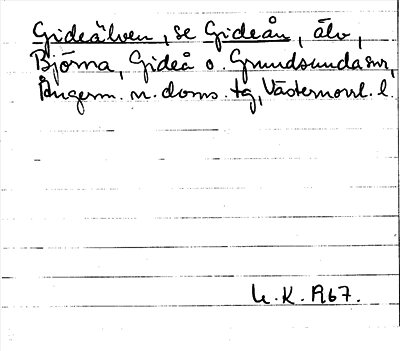 Gideälven, se Gideån, älv,
Björna, Gideå o. Grundsunda snr,
Ångerm. n. doms. tg, Västernorrl. l.
U.K. 1967.